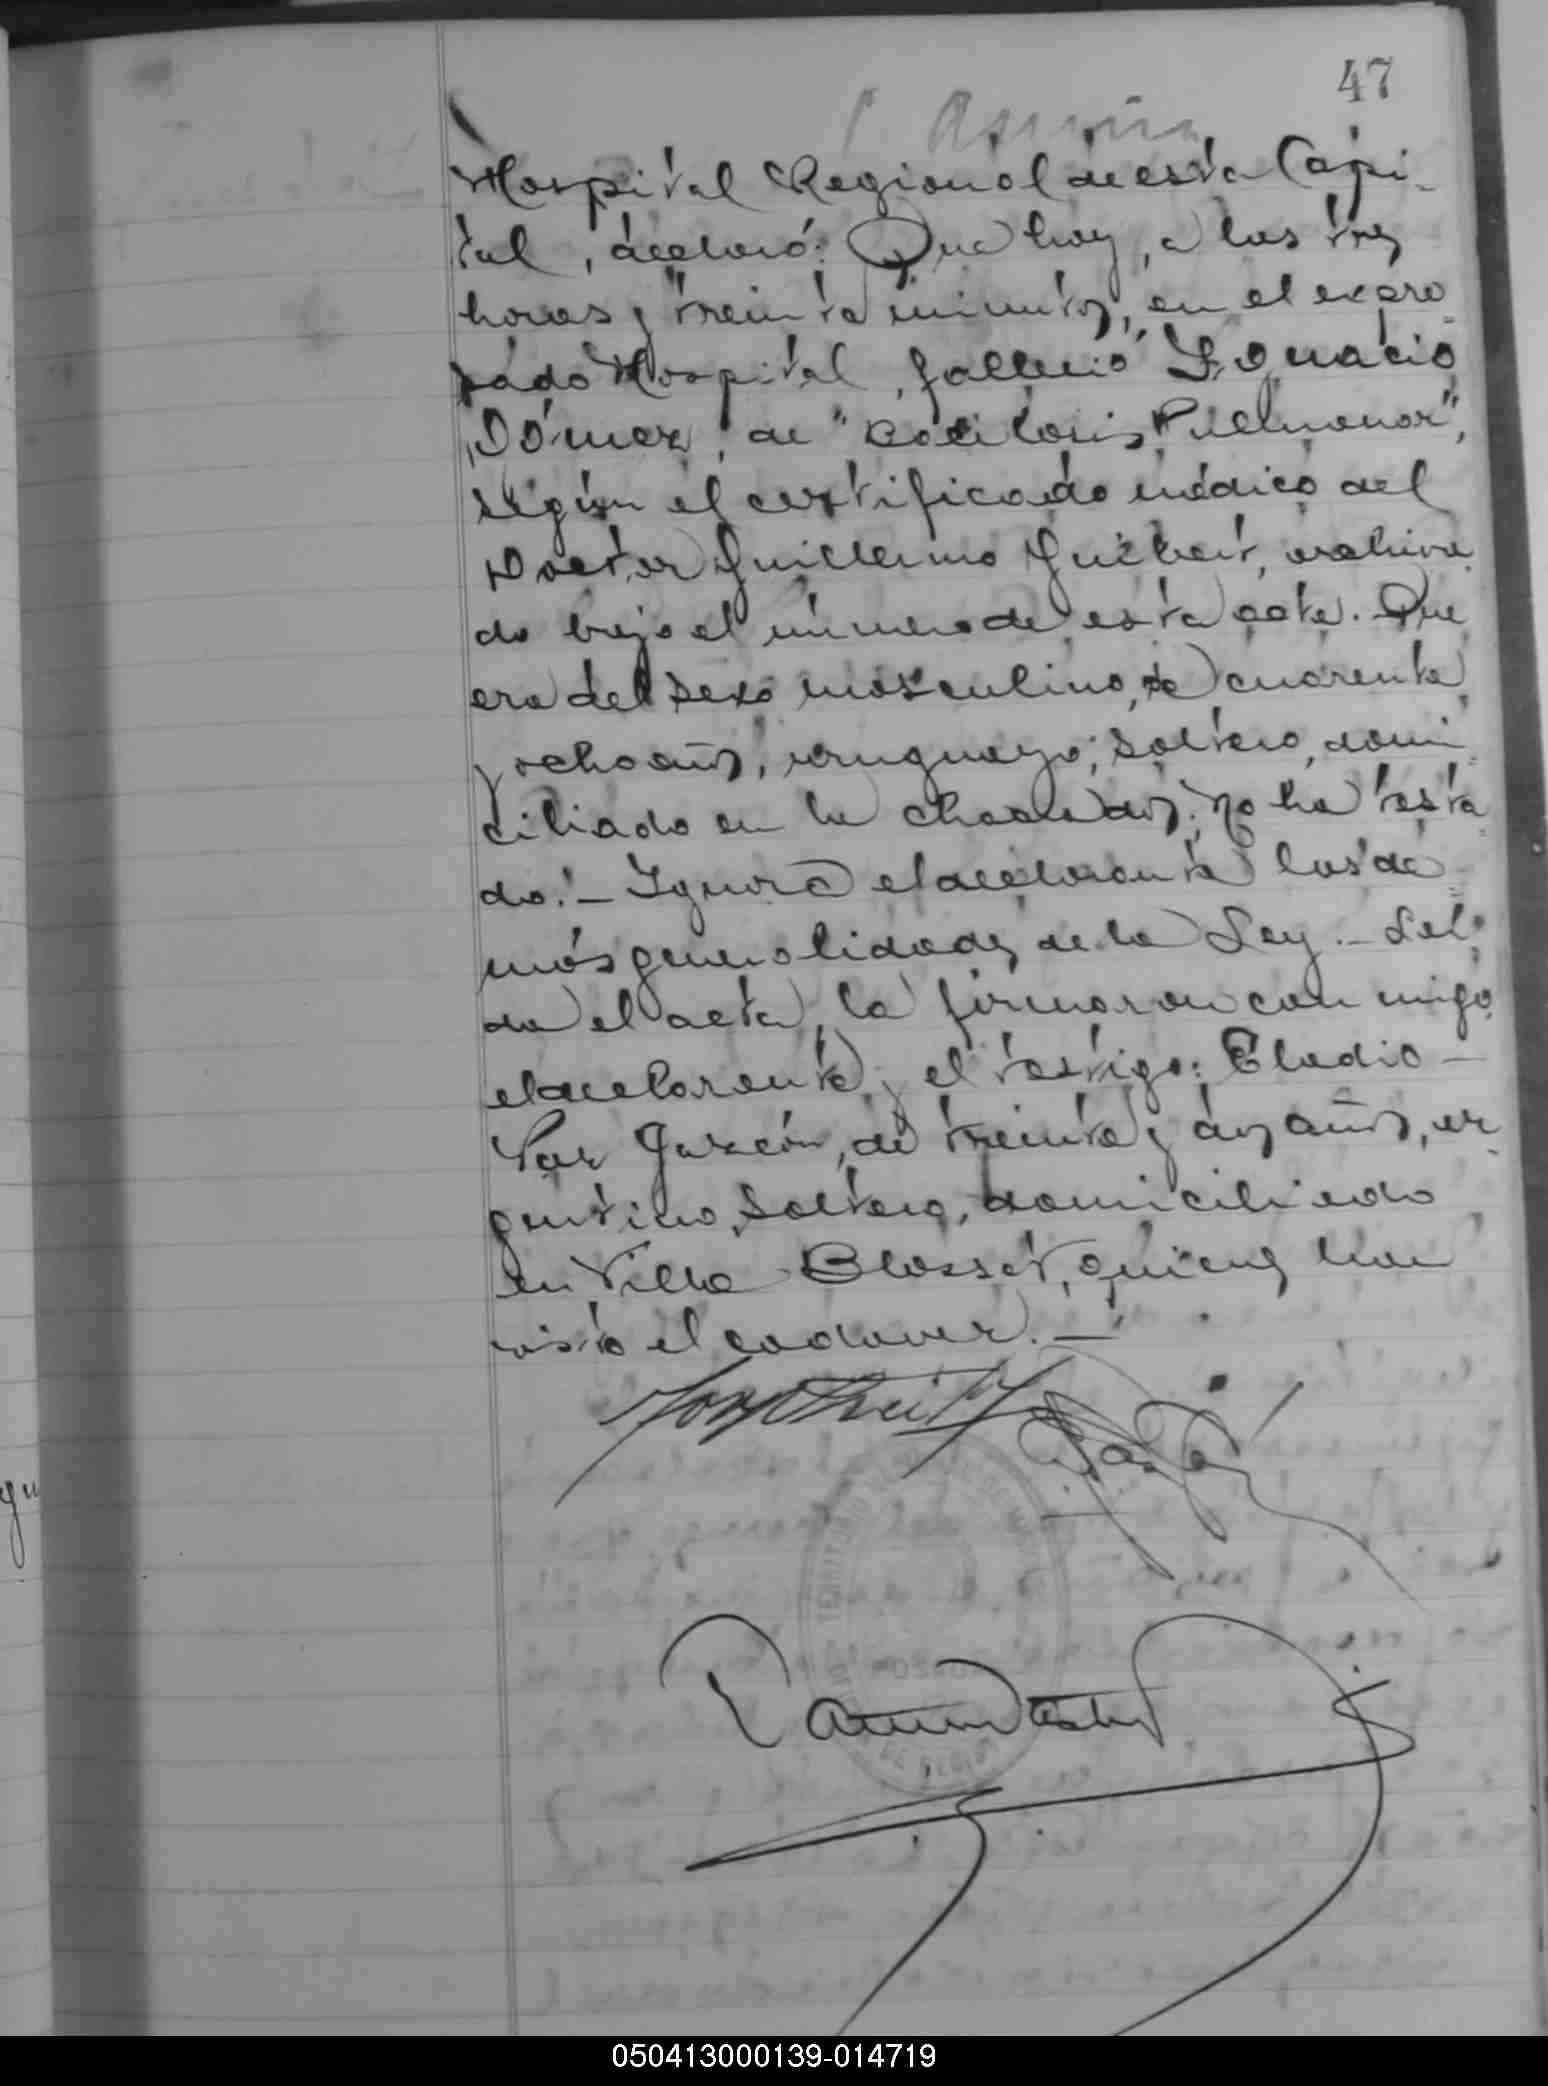 47
Hospital Regional de esta Capi-
tal, declaró: Que hoy, a las tres
horas y treinta minutos, en el expre-
sado Hospital, falleció Ignacio
Gómez, de " Pulmonar",
según el certificado médico del
Doctor Guillermo archiva-
do bajo el número de esta acta. Que
era del sexo masculino, de cuarenta
y ocho años, uruguayo, soltero, domi-
ciliado en la chacra dos; no ha testa-
do.- Ignora el declarante las de-
más generalidades de la Ley.- Leí-
da el acta, la firmaron conmigo
el declarante y el testigo: Eladio -
Paz Garzón, de treinta y dos años, ar-
gentino, soltero, domiciliado
en Villa quienes han
visto el cadaver. -
TERRITORIO
050413000139-014719